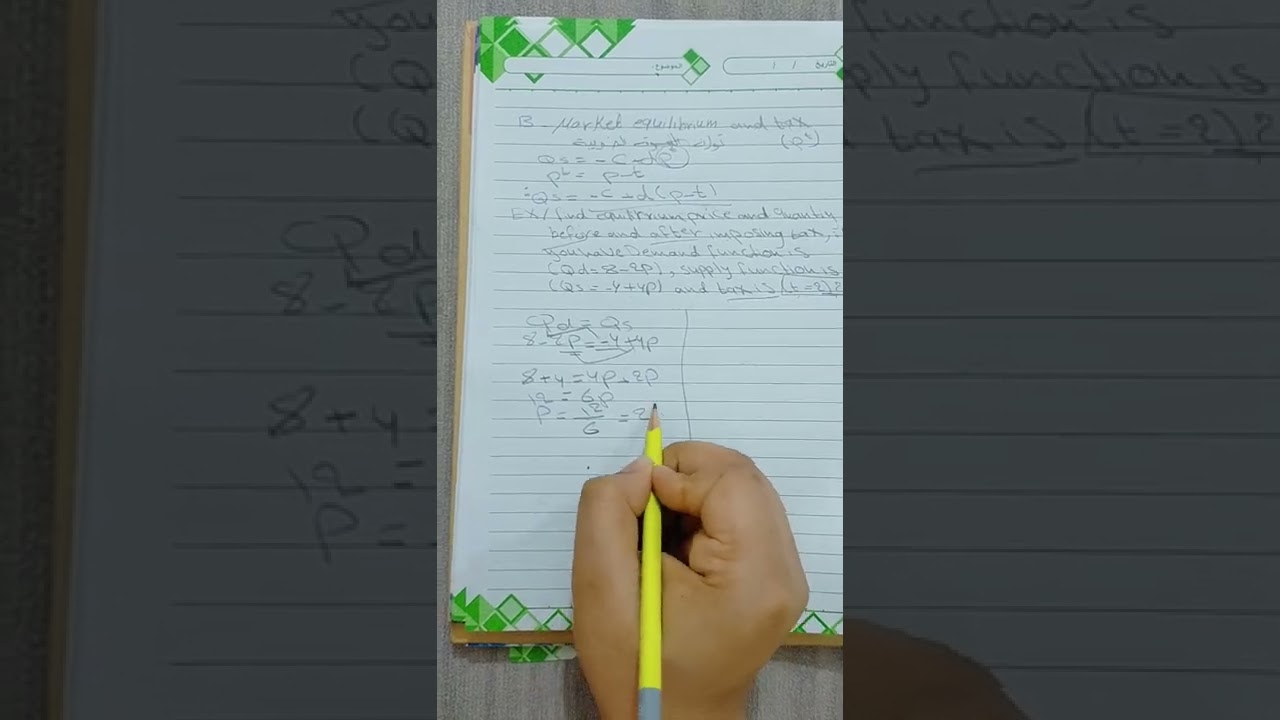 الموضوع:
التاريخ / /
B - Market equilibrium and tax
توازن السوق (Pᵗ)
Qs = -c + d(Pᵗ)
Pᵗ = P-t
∴ Qs = -c + d(P-t)
EX/ find equilibrium price and quantity
before and after imposing tax, i
you have Demand function is
(Qd = 8-2P), supply function is
(Qs = -4+4P) and tax is (t=2)?
Qd = Qs
8-2P = -4+4P
8+4 = 4P+2P
12 = 6P
P = 12/6 = 2